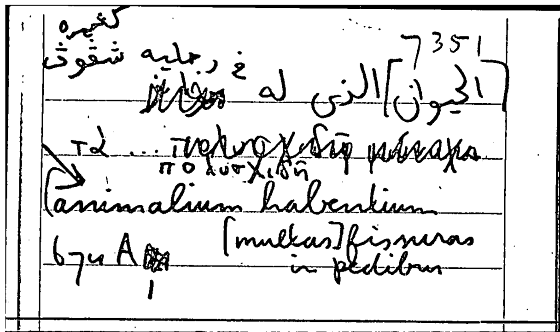 7351
كثيرة
في رجليه شقوق
[الحيوان] الذى له
τὰ ...
πολυσχιδῆ
[animalium habentium
[multas] fissuras
in pedibus
674 A
1